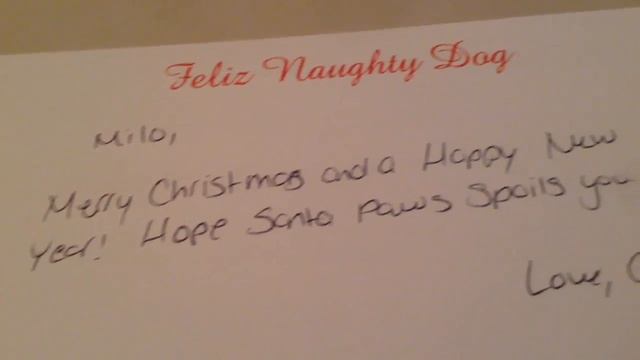 Feliz Naughty Dog
Milo,
Merry Christmas and a Happy New
Year! Hope Santa Paws Spoils you
Love,